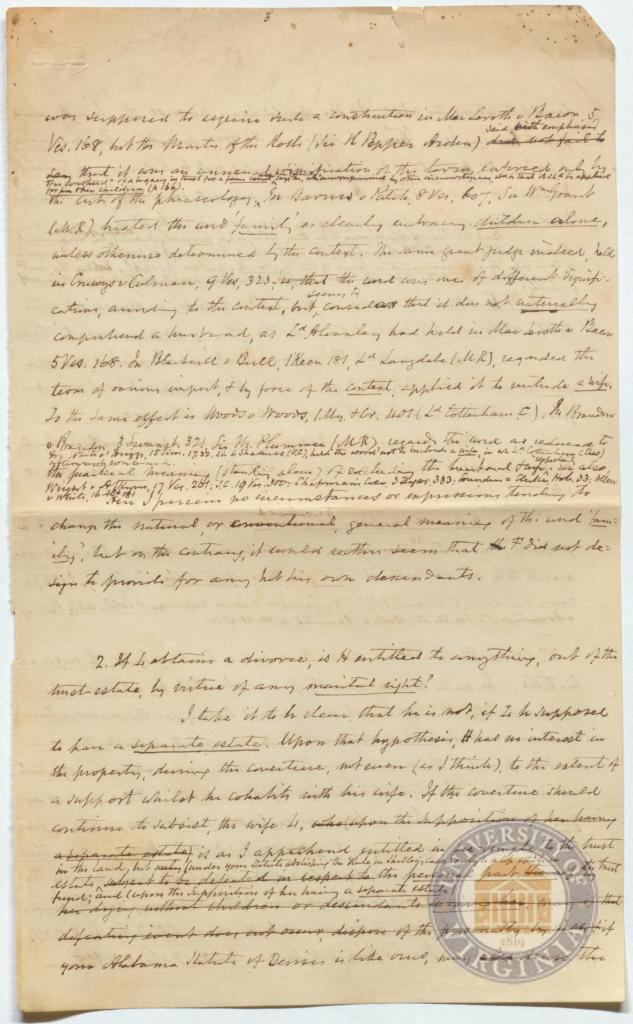 3
was supposed to require such a construction in MacLeroth v Bacon, 5
Ves. 168, but the Master of the Rolls (Sir R Pepper Arden) said with emphasis did not fail to
say that it was an unusual signification of the term, enforced only by
for his other children (p 166).
the cast of the phraseology. In Barnes v Patch, 8 Ves, 607, Sir Wm Grant
(M.R) treated the word 'family' as clearly embracing children alone,
unless otherwise determined by the context. The same great judge indeed, held
in Cruwys v Colman, 9 Ves, 323, that the word was one of different signifi-
cations, according to the context, but seems to consider that it does not naturally
comprehend a husband, as Ld Alvanley had held in MacLeroth v Bacon
5 Ves. 168. In Blackwell v Bull, 1 Keen 181, Ld Langdale (M.R), regarded the
term of various import, & by force of the context, applied it to include a wife.
To the same effect is Woods v Woods, 1 My. & Cr. 401 (Ld Cottenham C). In Brandon
v Brandon, 3 Swanst. 321, Sir Th. Plummer (M.R.) regards the word as reduced to
15 Sim. 17, 33, Sir L Shadwell (V.C.), held the word not to include a wife, in wh. Ld Cottenham
afterwards concurred.
the practical meaning (standing alone) of excluding the husband & wife. See also
Wright v Atkyns, 17 Ves. 261, S.C. 19 Ves. 300; Chapman's Case, 3 Dyer, 333; Counden v Clerke, Hob. 33; Allen
v White, 16
Here I perceive no circumstances or expressions tending to
change the natural, or conventional, general meaning of the word 'fam-
ily', but on the contrary, it would rather seem that F did not de-
sign to provide for any but his own descendants.
2. If L obtains a divorce, is H entitled to anything, out of the
trust-estate, by virtue of any marital right?
I take it to be clear that he is not, if L be supposed
to have a separate estate. Upon that hypothesis, H has no interest in
the property, during the coverture, not even (as I think), to the extent of
a support whilst he cohabits with his wife. If the coverture should
continue to subsist, the wife L, who (upon the supposition of her having
a separate estate) is as I apprehend entitled in fee simple to the trust
in the land, but only (under your Statute abolishing the Rule in Shelley's case) to a
estate, subject to be defeated in respect to the personal part the trust
fund; and (upon the supposition of her having a separate estate
her dying without children or descendants
defeating event does not occur, dispose of the personalty
your Alabama Statute of Devises is like ours, may devise the
UNIVERSITY OF VIRGINIA
1819